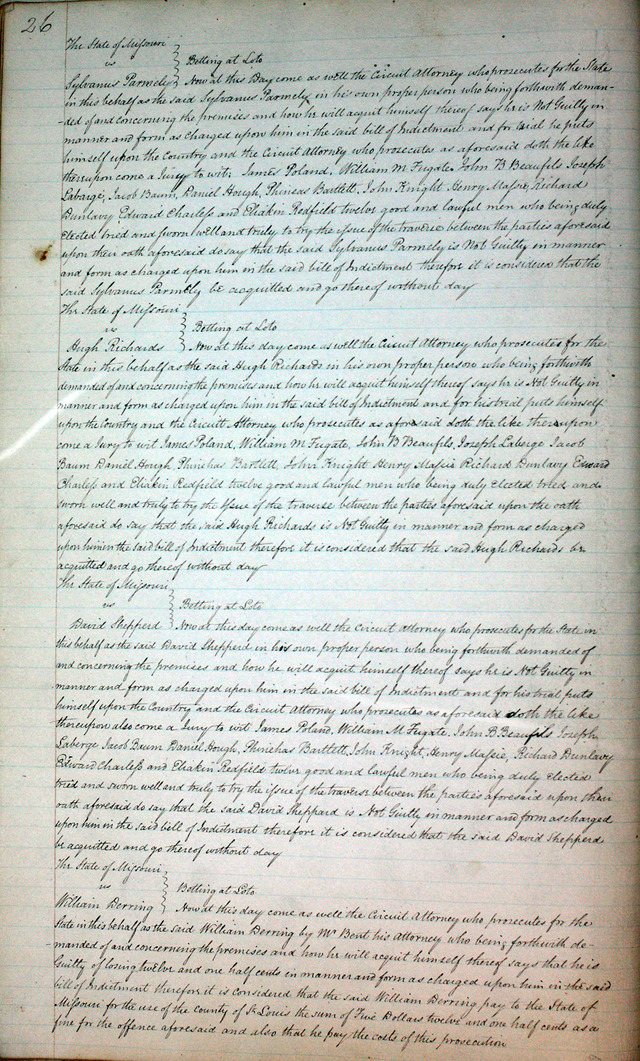 26
The State of Missouri
vs } Betting at Loto
Sylvanus Parmely Now at this Day come as well the Circuit Attorney who prosecutes for the State
in this behalf as the said Sylvanus Parmely in his own proper person who being forthwith deman-
-ded of and concerning the premises and how he will acquit himself thereof says he is Not Guilty in
manner and form as charged upon him in the said bill of Indictment and for trial he puts
himself upon the Country and the Circuit Attorney who prosecutes as aforesaid doth the like
thereupon come a Jury to wit. James Poland. William M Fugate. John B Beaufils Joseph
Labarge, Jacob Baum, Daniel Hough, Phineas Bartlett, John Knight, Henry Massie, Richard
Dunlavy Edward Charless and Eliakin Redfield twelve good and lawful men who being duly
Elected tried and sworn well and truly to try the issue of the traverse between the parties aforesaid
upon their oath aforesaid do say that the said Sylvanus Parmely is Not Guilty in manner
and form as charged upon him in the said bill of Indictment therefore it is considered that the
said Sylvanus Parmely be acquitted and go thereof without day
The State of Missouri
vs } Betting at Loto
Hugh Richards Now at this day come as well the Circuit Attorney who prosecutes for the
State in this behalf as the said Hugh Richards in his own proper person who being forthwith
demanded of and concerning the premises and how he will acquit himself thereof says he is Not Guilty in
manner and form as charged upon him in the said bill of Indictment and for his trial puts himself
upon the Country and the Circuit Attorney who prosecutes as aforesaid doth the like thereupon
come a Jury to wit James Poland, William M Fugate, John B Beaufils, Joseph Laberge Jacob
Baum Daniel Hough, Phinehas Bartlett, John Knight Henry Massie Richard Dunlavy Edward
Charless and Eliakin Redfield twelve good and lawful men who being duly Elected tried and
sworn well and truly to try the Issue of the traverse between the parties aforesaid upon the oath
aforesaid do say that the said Hugh Richards is Not Guilty in manner and form as charged
upon him in the said bill of Indictment therefore it is considered that the said Hugh Richards be
acquitted and go thereof without day
The State of Missouri
vs } Betting at Loto
David Shepperd Now at this day come as well the Circuit Attorney who prosecutes for the State in
this behalf as the said David Shepperd in his own proper person who being forthwith demanded of
and concerning the premises and how he will acquit himself thereof says he is Not Guilty in
manner and form as charged upon him in the said bill of Indictment and for his trial puts
himself upon the Country and the Circuit Attorney who prosecutes as aforesaid doth the like
thereupon also come a Jury to wit James Poland, William M Fugate, John B. Beaufils Joseph
Laberge Jacob Baum Daniel Hough, Phinehas Bartlett, John Knight, Henry Massie, Richard Dunlavy
Edward Charless and Eliakin Redfield twelve good and lawful men who being duly elected
tried and sworn well and truly to try the issue of the traverse between the parties aforesaid upon their
oath aforesaid do say that the said David Sheppard is Not Guilty in manner and form as charged
upon him in the said bill of Indictment therefore it is considered that the said David Shepperd
be acquitted and go thereof without day
The State of Missouri
vs } Betting at Loto
William Derring Now at this day come as well the Circuit Attorney who prosecutes for the
State in this behalf as the said William Derring by Mr Bent his Attorney who being forthwith de-
manded of and concerning the premises and how he will acquit himself thereof says that he is
Guilty of losing twelve and one half cents in manner and form as charged upon him in the said
bill of Indictment therefore it is considered that the said William Derring pay to the State of
Missouri for the use of the County of St Louis the sum of Five Dollars twelve and one half cents as a
fine for the offence aforesaid and also that he pay the costs of this prosecution